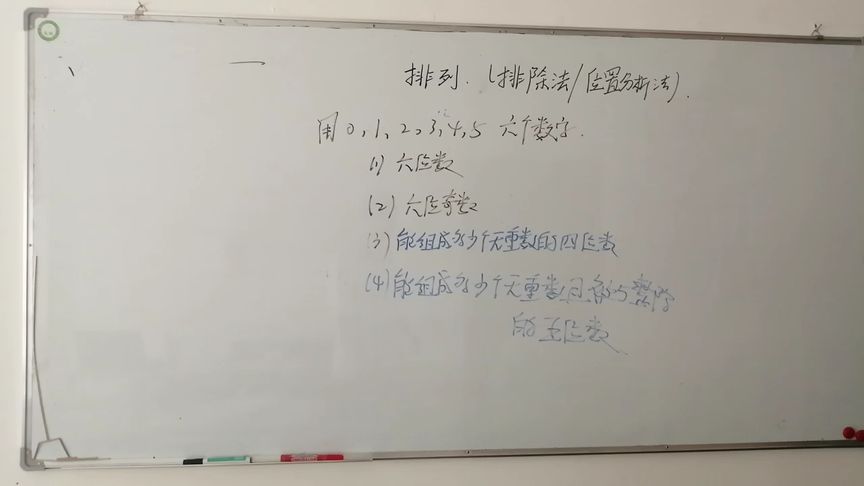 排列.(排除法/位置分析法).
用0,1,2,3,4,5 六个数字.
(1)六位数
(2)六位奇数
(3)能组成多少个无重数的四位数
(4)能组成多少个无重数且被5整除
的五位数